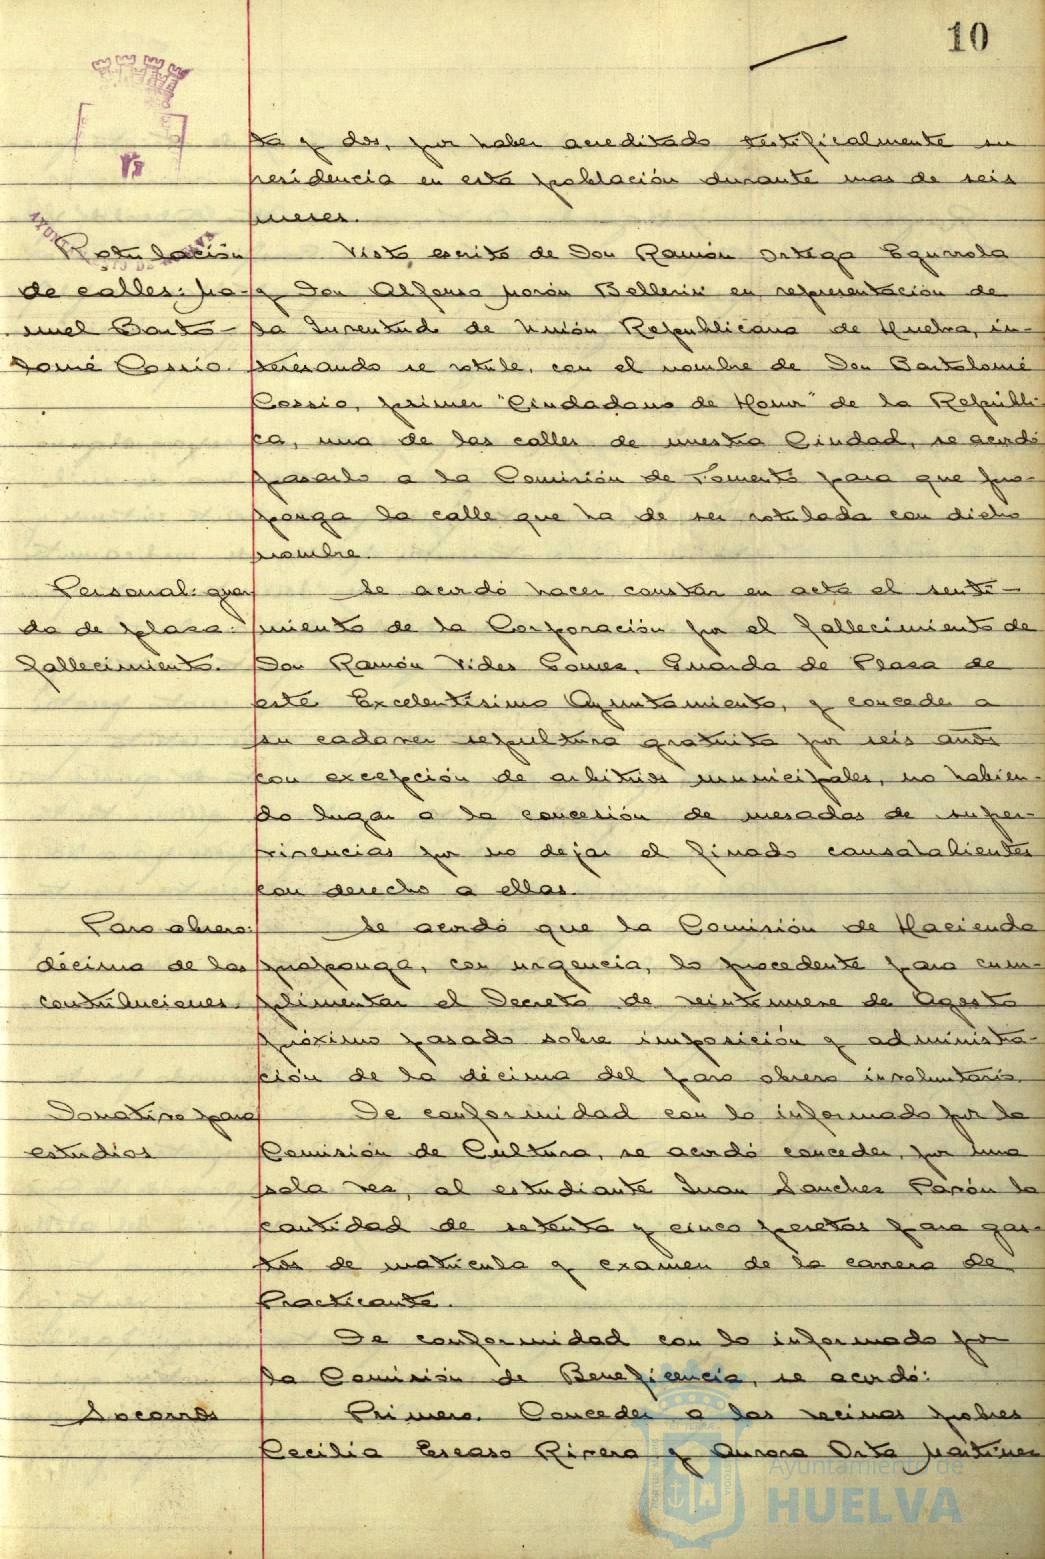 10
ta y dos, por haber acreditado testificalmente su
residencia en esta población durante mas de seis
meses.
Rotulación
de calles: Ma-
nuel Barto-
lomé Cossio.
Visto escrito de Don Ramón Ortega Egurrola
y Don Alfonso Morón Bellerin en representación de
la Juventud de Unión Republicana de Huelva, in-
teresando se rotule, con el nombre de Don Bartolomé
Cossio, primer "Ciudadano de Honor" de la Repúbli-
ca, una de las calles de nuestra Ciudad, se acordó
pasarlo a la Comisión de Fomento para que pro-
ponga la calle que ha de ser rotulada con dicho
nombre.
Personal: guar
da de plaza:
fallecimiento.
Se acordó hacer constar en acta el senti-
miento de la Corporación por el fallecimiento de
Don Ramón Vides Gomez, Guarda de Plaza de
este Excelentísimo Ayuntamiento, y conceder a
su cadaver sepultura gratuita por seis años
con excepción de arbitrios municipales, no habien-
do lugar a la concesión de mesadas de super-
vivencias por no dejar el finado causahabientes
con derecho a ellas.
Paro obrero:
décima de las
contribuciones.
Se acordó que la Comisión de Hacienda
proponga, con urgencia, lo procedente para cum-
plimentar el Decreto de veintinueve de Agosto
próximo pasado sobre imposición y administra-
ción de la décima del paro obrero involuntario.
Donativo para
estudios
De conformidad con lo informado por la
Comisión de Cultura, se acordó conceder, por una
sola vez, al estudiante Juan Sanchez Pavón la
cantidad de setenta y cinco pesetas para gas-
tos de matrícula y examen de la carrera de
Practicante.
De conformidad con lo informado por
la Comisión de Beneficencia, se acordó:
Socorros
Primero. Conceder a las vecinas pobres
Cecilia Escaso Rivera y Aurora Orta Martinez
Ayuntamiento de
HUELVA